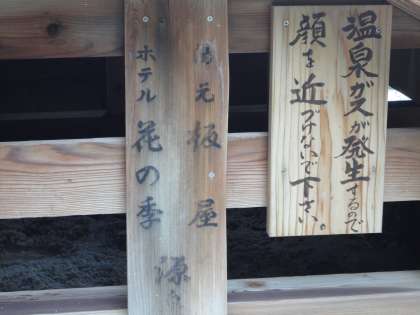 温泉ガスが発生するので
顔を近づけないで下さい。
湯元板屋
ホテル花の季
源